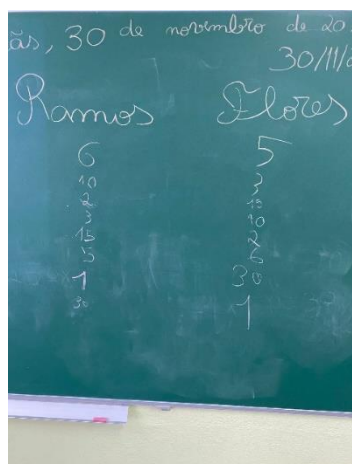 ãs, 30 de novembro de 20
30/11/
Ramos Flores
6 5
10 3
2 15
3 10
15 2
5 6
1 30
30 1